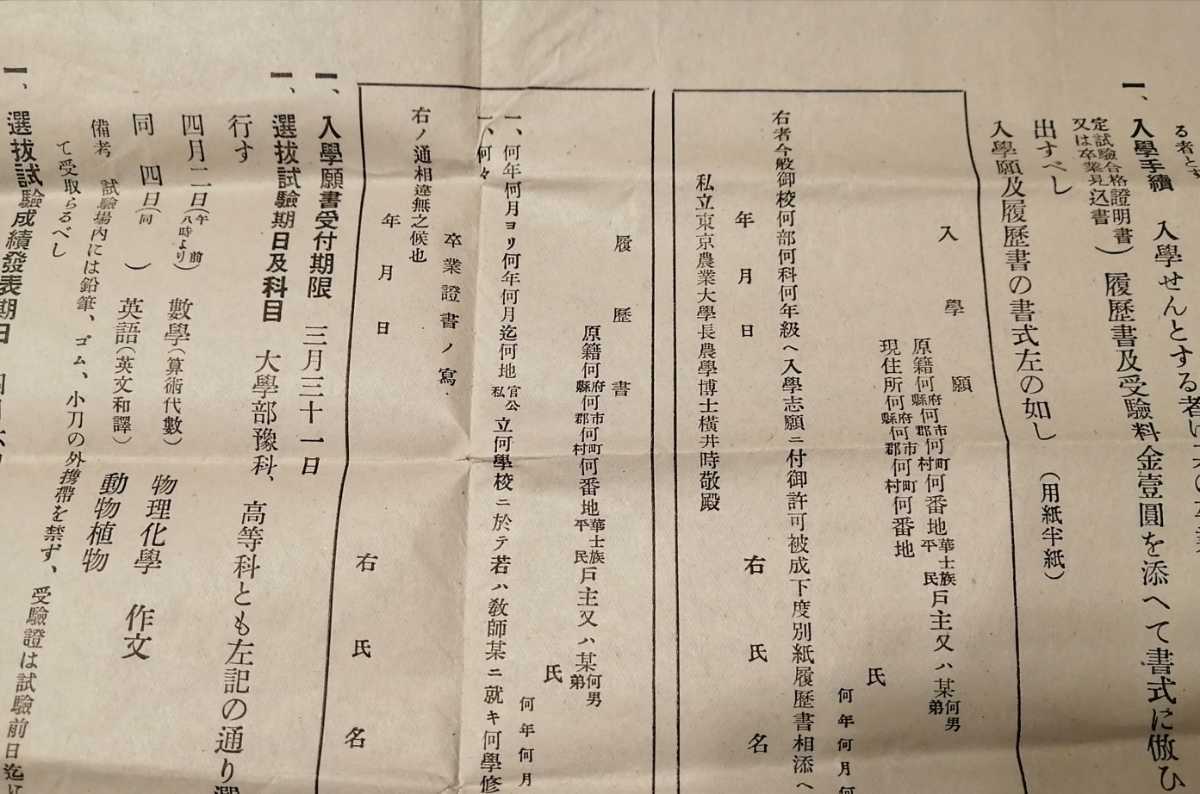 る者とす
一、入學手續 入學せんとする者は
定試驗合格證明書
又は卒業見込書）履歴書及受驗料金壹圓を添へて書式に倣ひ
出すべし
入學願及履歴書の書式左の如し（用紙半紙）
入學願
原籍何府縣何市郡何町村何番地華士族平民戸主又ハ某何男弟
現住所何府縣何市郡何町村何番地
氏
何年何月何
右者今般御校何部何科何年級ヘ入學志願ニ付御許可被成下度別紙履歴書相添ヘ
年月日
右氏名
私立東京農業大學長農學博士横井時敬殿
履歴書
原籍何府縣何市郡何町村何番地華士族平民戸主又ハ某何男弟
氏
何年何月
一、何年何月ヨリ何年何月迄何地官公私立何學校ニ於テ若ハ敎師某ニ就キ何學修
一、何々
卒業證書ノ寫
右ノ通相違無之候也
年月日
右氏名
一、入學願書受付期限 三月三十一日
一、選拔試驗期日及科目 大學部豫科、高等科とも左記の通り選
行す
四月二日（午前八時より）數學（算術代數） 物理化學 作文
同 四日（同 ）英語（英文和譯） 動物植物
備考 試驗場内には鉛筆、ゴム、小刀の外携帶を禁ず、受驗證は試驗前日迄に
て受取らるべし
一、選拔試驗成績發表期日 四月六日